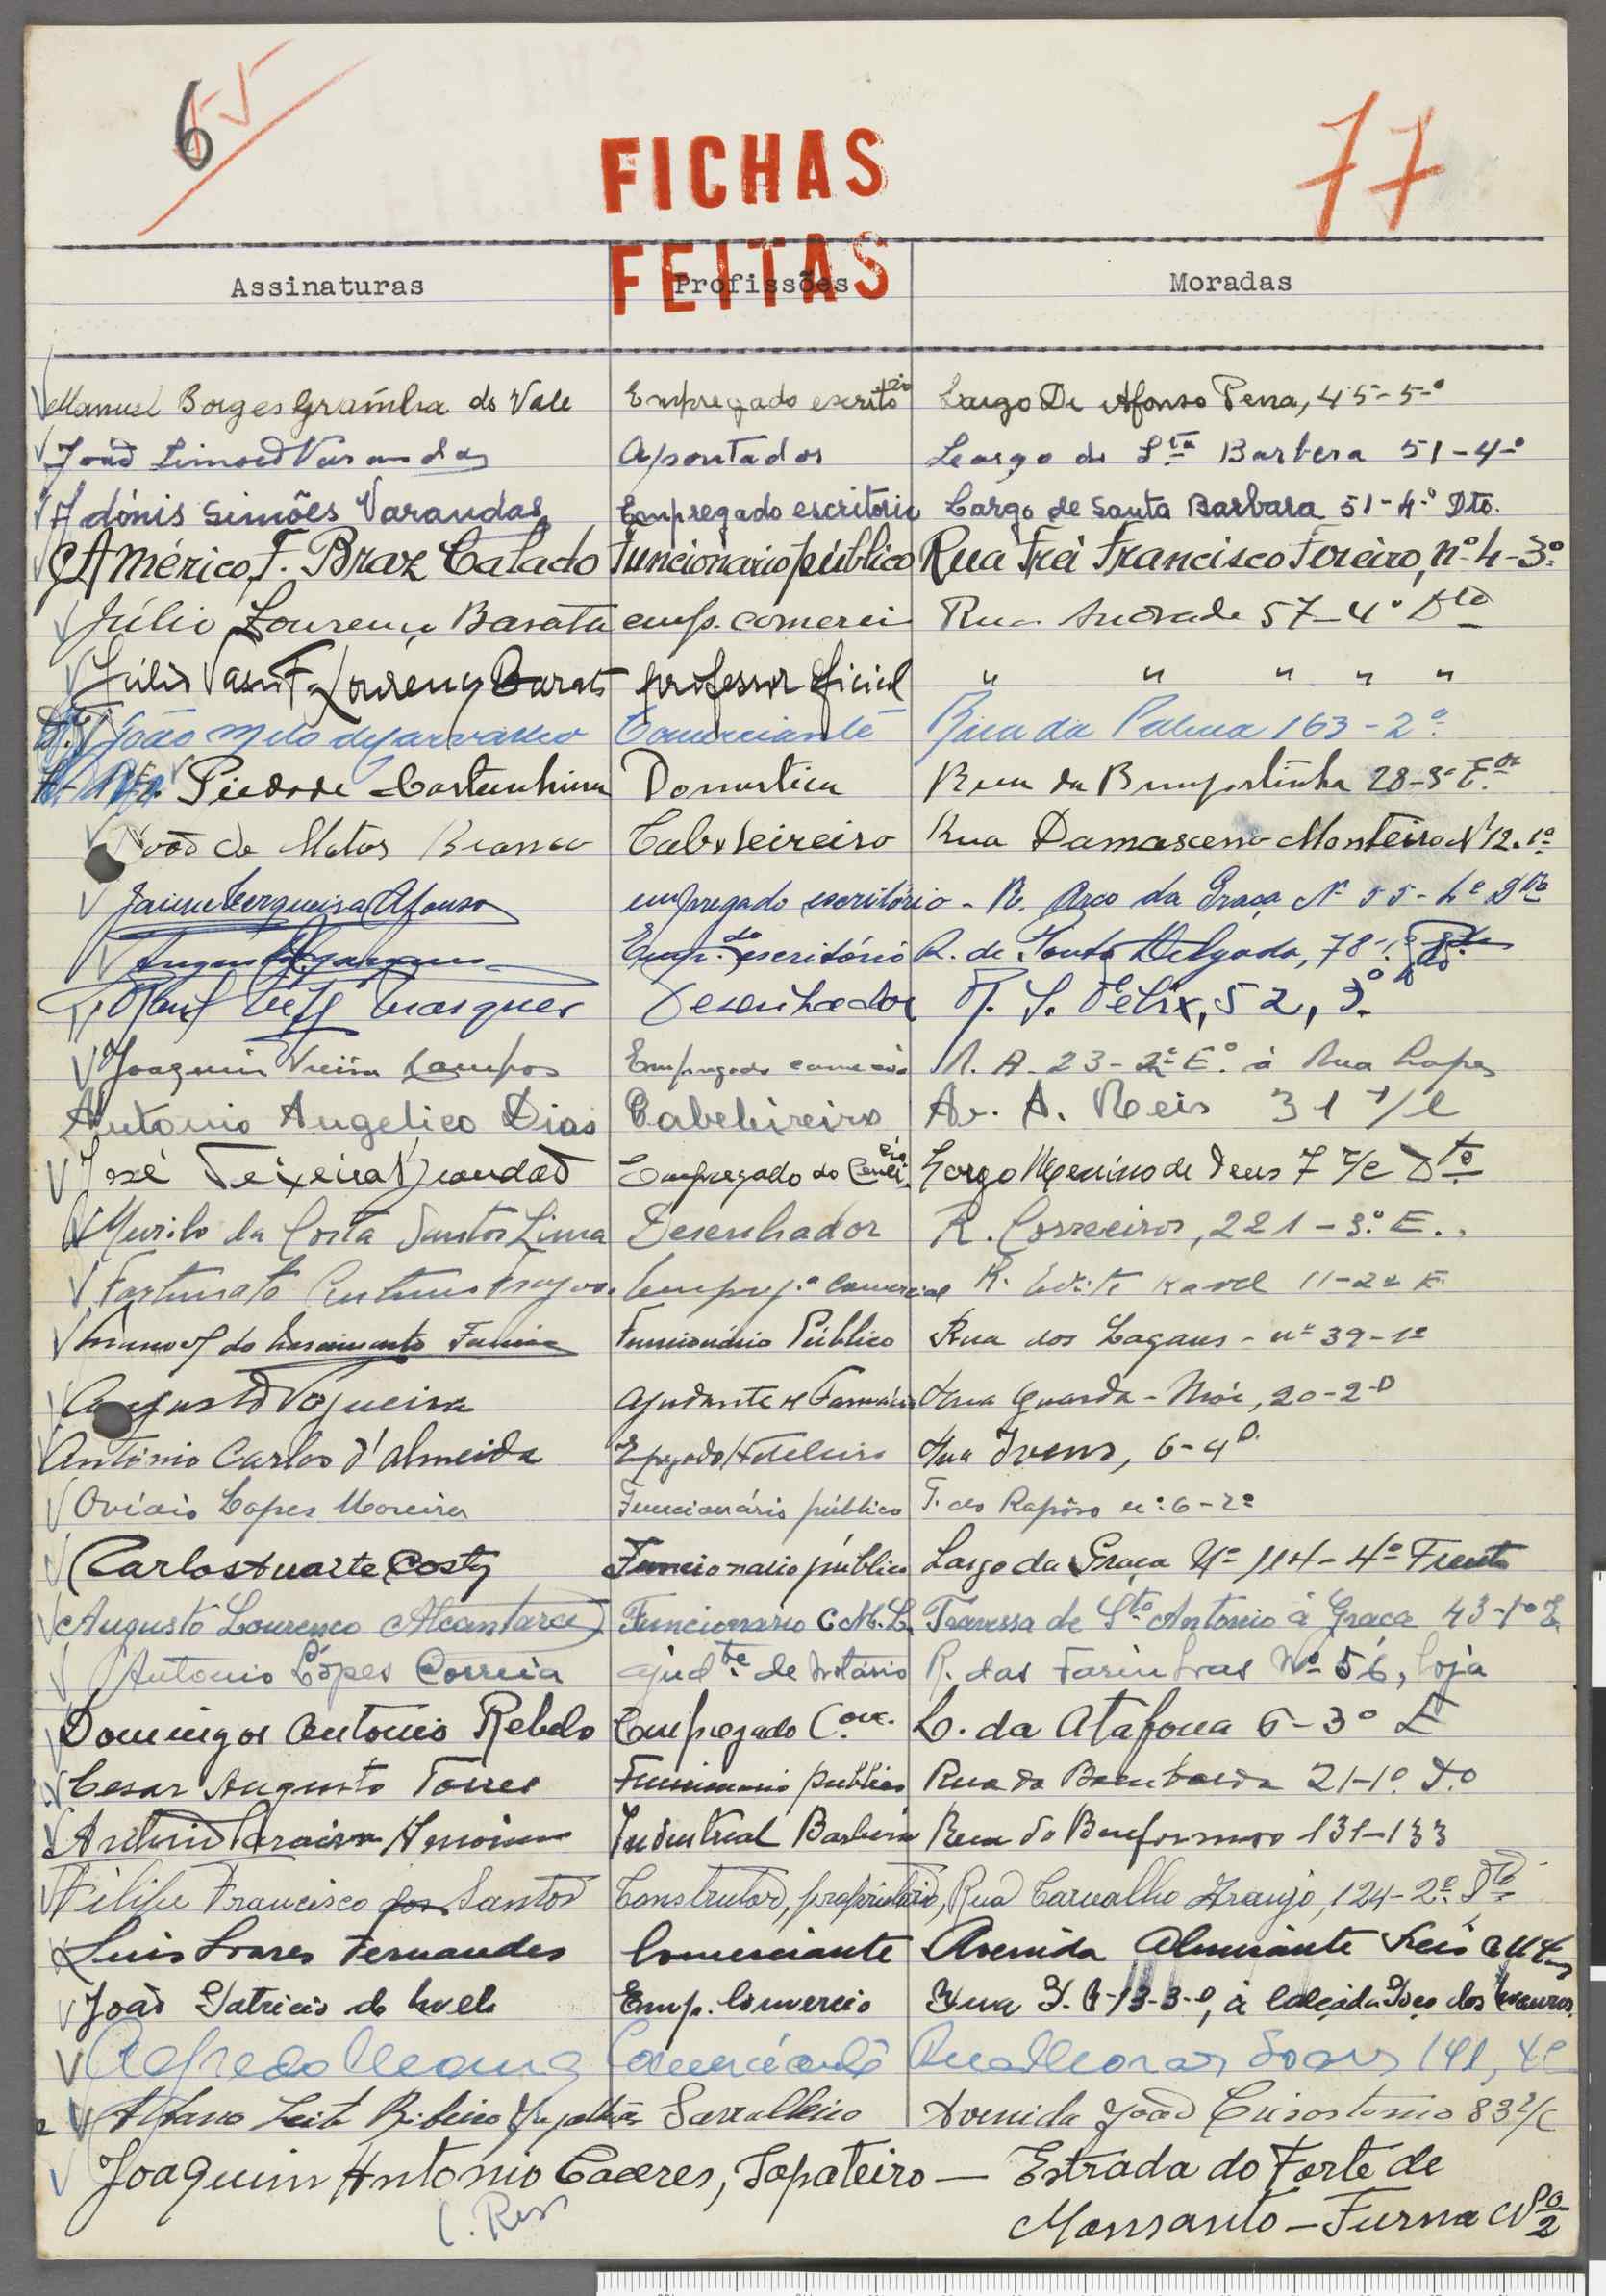 6
77
FICHAS
FEITAS
Assinaturas Profissões Moradas
Manuel Borges Grainha do Vale Empregado escritório Largo Dr Afonso Pena, 45-5º
João Simões Varandas Apontador Largo de Sta Barbera 51-4º
Adónis Simões Varandas Empregado escritório Largo de Santa Barbara 51-4º Dto.
Américo F. Braz Calado Funcionario público Rua Frei Francisco Foreiro, nº 4-3º
Júlio Lourenço Barata emp. comerci Rua Andrade 57-4º Dto
Júlio Lourenço Barata professor oficial " " " " "
João Melo de Carvalho Comerciante Rua da Palma 163-2º
Piedade Castanheira Domestica Rua da Bempostinha 28-3º
João de Matos Branco Cabeleireiro Rua Damasceno Monteiro Nº 12.1º
Jaime Cerqueira Afonso empregado escritório - R. Arco da Graça Nº 55-4º Dto
Emp. do escritório R. de Ponta Delgada, 78
Marques Desenhador T. S. Felix, 52, 3.º
Joaquim Vieira Campos Empregado comercio R. A. 23-2º E.º à Rua Lopes
Antonio Angelico Dias Cabeleireiro Av. A. Reis 31 r/c
José Teixeira Empregado do Comércio Largo Menino de Deus 7 r/c Dto
Murilo da Costa Santos Lima Desenhador R. Correeiros, 221-3º E.
Fortunato Antunes Empreg.º Comercial R. Edite Kavel 11-2º E
Manoel do Nascimento Funcionário Público Rua dos Lagares - nº 39-1º
Augusto Nogueira Ajudante de Farmácia Rua Guarda-Mór, 20-2º
António Carlos d'Almeida Epregado Hoteleiro Rua Ivens, 6-4º
Ovidio Lopes Moreira Funcionário público T. do Rapôso nº 6-2º
Carlos Duarte Costa Funcionario público Largo da Graça Nº 114-4º Frente
Augusto Lourenço Alcantara Funcionario C.M.L. Travessa de Sto Antonio à Graça 43-1º E
Antonio Lópes Correia ajudte de Notário R. das Farinhas Nº 56, loja
Domingos Antonio Rebelo Empregado Com. L. da Atafona 6-3º E
Cesar Augusto Torres Funcionario publico Rua da Bombarda 21-1º D.º
Antonio Saraiva Industrial Barbeiro Rua do Benformoso 131-133
Filipe Francisco dos Santos Construtor, proprietário, Rua Carvalho Araujo, 124-2º Dto
Luis Soares Fernandes Comerciante Avenida Almirante Reis
João Patricio de Melo Emp. Comercio Rua I. B-13-3-º, à Calçada Poço dos Mouros
Alfredo Comerciante Rua Moraes Soares 141, 4º
Alvaro Leite Ribeiro Serralheiro Avenida João Crisostomo 83 r/c
Joaquim Antonio Caceres, Sapateiro — Estrada do Forte de
Monsanto - Furna Nº 2